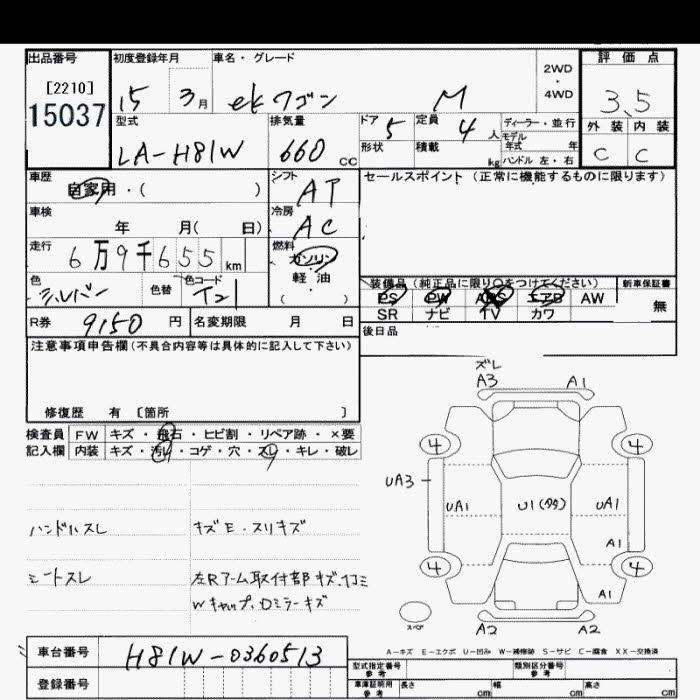 出品番号 初度登録年月 車名・グレード 2WD・4WD 評価点
[2210]
15037
15 3月 ekワゴン M 3.5
型式 排気量 ドア 5 定員 4人 ディーラー・並行 外装 内装
モデル年式 年
LA-H81W 660 cc 形状 積載 kg ハンドル 左・右 C C
車歴 自家用・( ) シフト AT セールスポイント(正常に機能するものに限ります)
車検 年 月( 日) 冷房 AC
走行 6万9千655km 燃料 ガソリン
軽油
( )
色 シルバー 色替 色コード T21
装備品(純正品に限り○をつけてください) 新車保証書
PS PW ABS エアB AW 無
SR ナビ TV カワ
R券 9150円 名変期限 月 日 後日品
注意事項申告欄(不具合内容等は具体的に記入して下さい)
修復歴 有 [箇所 ]
検査員 FW キズ・飛石・ヒビ割・リペア跡・×要
記入欄 内装 キズ・汚レ・コゲ・穴・スレ・キレ・破レ
ハンドルスレ キズE・スリキズ
シートスレ 左Rアーム取付部キズ.凹ミ
Wキャップ.Dミラーキズ
ズレ
A3 A1
4 4
UA3
UA1 U1(多) UA1
A1
4 4
A1
スペア A2 A2
A-キズ E-エクボ U-凹み W-補修跡 S-サビ C-腐食 XX-交換済
車台番号 H81W-0360513
型式指定番号 参考 類別区分番号 参考
登録番号 車庫証明用 参考 長さ cm 幅 cm 高さ cm